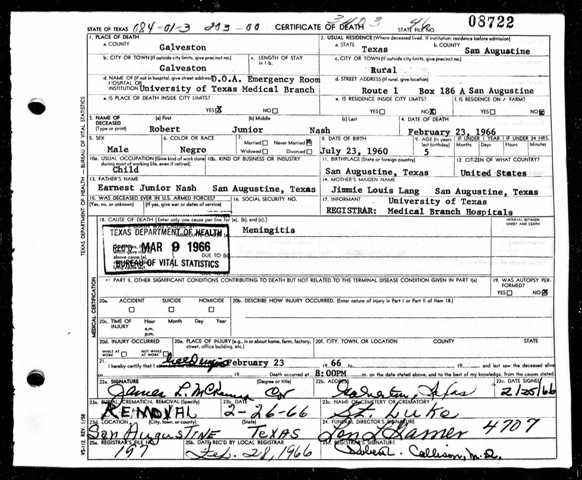 084-01-3 203-00
3403
46
08722
STATE OF TEXAS CERTIFICATE OF DEATH STATE FILE NO.
1. PLACE OF DEATH
a. COUNTY
Galveston
2. USUAL RESIDENCE (Where deceased lived. If institution: residence before admission)
a. STATE
Texas
b. COUNTY
San Augustine
b. CITY OR TOWN (If outside city limits, give precinct no.)
Galveston
c. LENGTH OF STAY
in 1 b.
c. CITY OR TOWN (If outside city limits, give precinct no.)
Rural
d. NAME OF (If not in hospital, give street address) D.O.A. Emergency Room
HOSPITAL OR
INSTITUTION University of Texas Medical Branch
d. STREET ADDRESS (If rural, give location)
Route 1 Box 186 A San Augustine
e. IS PLACE OF DEATH INSIDE CITY LIMITS?
YES NO
e. IS RESIDENCE INSIDE CITY LIMITS?
YES NO
f. IS RESIDENCE ON A FARM?
YES NO
3. NAME OF
DECEASED
(Type or print)
(a) First
Robert
(b) Middle
Junior
(c) Last
Nash
4. DATE OF DEATH
February 23, 1966
5. SEX
Male
6. COLOR OR RACE
Negro
7. Married Never Married
Widowed Divorced
8. DATE OF BIRTH
July 23, 1960
9. AGE (In years
last birthday)
5
IF UNDER 1 YEAR
Months Days
IF UNDER 24 HRS.
Hours Minutes
10a. USUAL OCCUPATION (Give kind of work done
during most of working life, even if retired)
Child
10b. KIND OF BUSINESS OR INDUSTRY
11. BIRTHPLACE (State or foreign country)
San Augustine, Texas
12. CITIZEN OF WHAT COUNTRY?
United States
13. FATHER'S NAME
Earnest Junior Nash San Augustine, Texas
14. MOTHER'S MAIDEN NAME
Jimmie Louis Lang San Augustine, Texas
15. WAS DECEASED EVER IN U.S. ARMED FORCES?
(Yes, no, or unknown) (If yes, give war or dates of service)
16. SOCIAL SECURITY NO.
17. INFORMANT
University of Texas
REGISTRAR: Medical Branch Hospitals
18. CAUSE OF DEATH (Enter only one cause per line for (a), (b), and (c).)
INTERVAL BETWEEN
ONSET AND DEATH
Meningitis
TEXAS DEPARTMENT OF HEALTH
MAR 9 1966
BUREAU OF VITAL STATISTICS
DUE TO
PART II. OTHER SIGNIFICANT CONDITIONS CONTRIBUTING TO DEATH BUT NOT RELATED TO THE TERMINAL DISEASE CONDITION GIVEN IN PART I(a)
19. WAS AUTOPSY PER-
FORMED?
YES NO
20a. ACCIDENT SUICIDE HOMICIDE
20b. DESCRIBE HOW INJURY OCCURRED. (Enter nature of injury in Part I or Part II of item 18.)
20c. TIME OF
INJURY
Hour Month Day Year
a.m.
p.m.
20d. INJURY OCCURRED
WHILE AT
WORK
NOT WHILE
AT WORK
20e. PLACE OF INJURY (e.g., in or about home, farm, factory,
street, office building, etc.)
20f. CITY, TOWN, OR LOCATION COUNTY STATE
21. I hereby certify that February 23 19 66
last saw the deceased alive
Death occurred at 8:00PM m. on the date stated above, and to the best of my knowledge, from the causes stated.
22a. SIGNATURE (Degree or title)
22b. ADDRESS
22c. DATE SIGNED
2/25/66
23a. BURIAL, CREMATION, REMOVAL (Specify)
REMOVAL
23b. DATE
2-26-66
23c. NAME OF CEMETERY OR CREMATORY
St. Luke
23d. LOCATION (City, town, or county) (State)
San Augustine Texas
24. FUNERAL DIRECTOR'S SIGNATURE
4707
25a. REGISTRAR'S FILE NO.
197
25b. DATE REC'D BY LOCAL REGISTRAR
Feb. 28, 1966
25c. REGISTRAR'S SIGNATURE
TEXAS DEPARTMENT OF HEALTH — BUREAU OF VITAL STATISTICS
MEDICAL CERTIFICATION